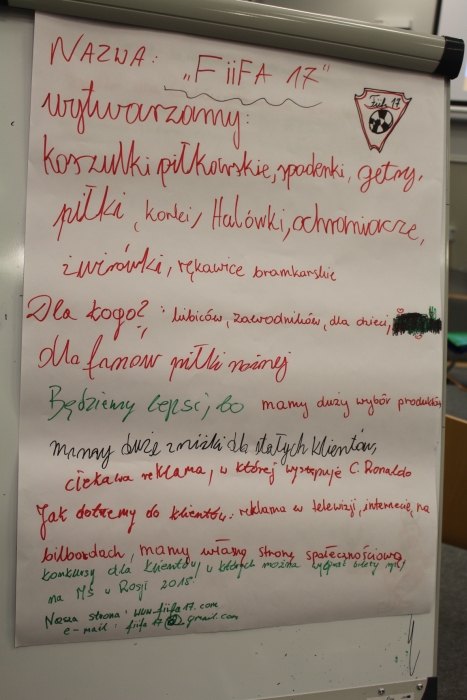 NAZWA: „FiiFA 17"
Fiifa 17
wytwarzamy:
koszulki piłkowskie, spodenki, getry,
piłki, korki, Halówki, ochroniacze,
żwirówki, rękawice bramkarskie
Dla kogo? : kibiców, zawodników, dla dzieci,
dla fanów piłki nożnej
Będziemy lepsi, bo mamy duży wybór produktów
mamy duże zniżki dla stałych klientów,
ciekawa reklama, w której występuje C. Ronaldo
Jak dotrzemy do klientów: reklama w telewizji, internecie, na
bilbordach, mamy własną stronę społecznościową,
konkursy dla klientów, w których można wygrać bilety np.
na MŚ w Rosji 2018
Nasza strona: www.fiifa17.com
e-mail: fiifa17@gmail.com